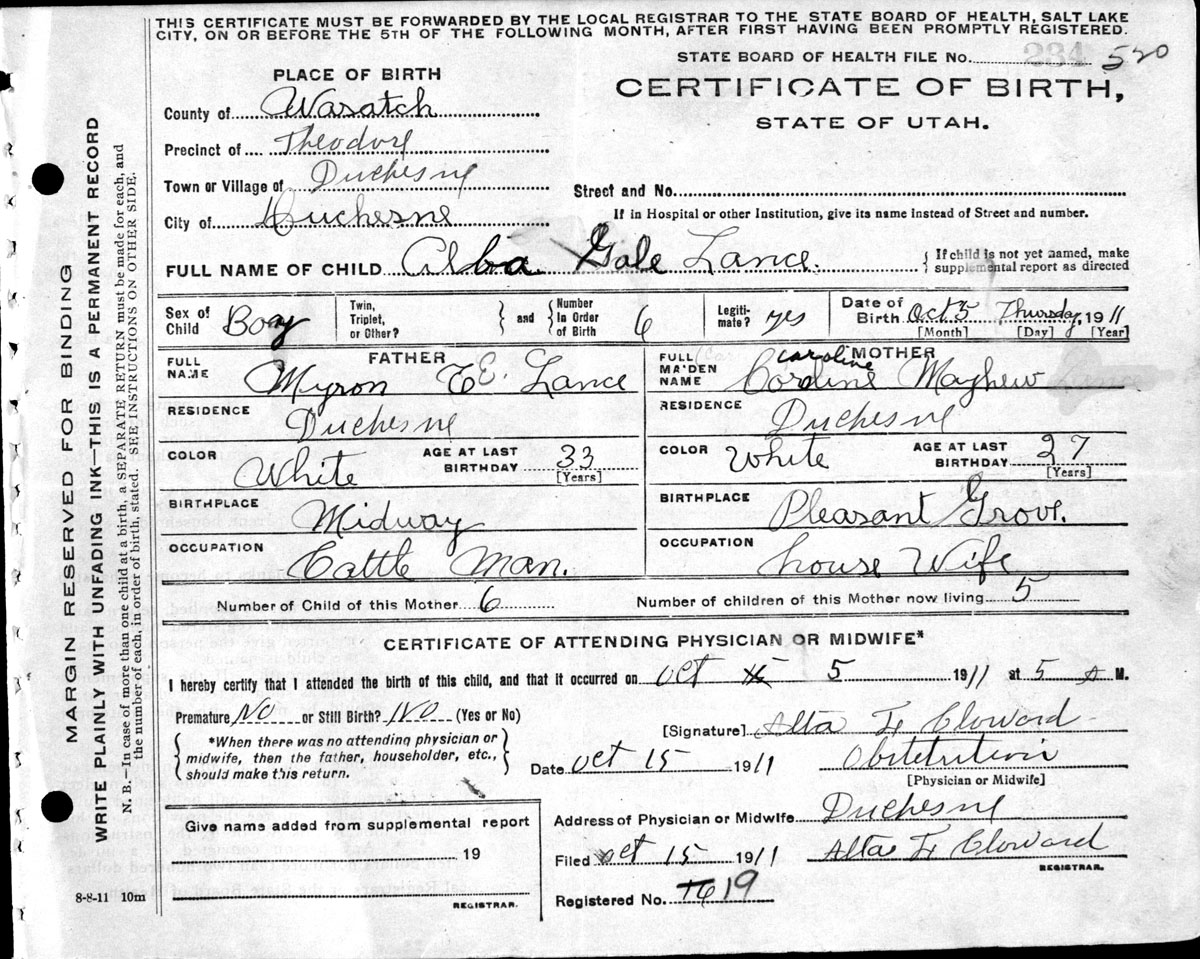 THIS CERTIFICATE MUST BE FORWARDED BY THE LOCAL REGISTRAR TO THE STATE BOARD OF HEALTH, SALT LAKE
CITY, ON OR BEFORE THE 5TH OF THE FOLLOWING MONTH, AFTER FIRST HAVING BEEN PROMPTLY REGISTERED.
STATE BOARD OF HEALTH FILE No. 234 520
PLACE OF BIRTH
CERTIFICATE OF BIRTH,
STATE OF UTAH.
County of Wasatch
Precinct of Theodore
Town or Village of Duchesne
Street and No.
City of Duchesne
If in Hospital or other Institution, give its name instead of Street and number.
FULL NAME OF CHILD Alba Gale Lance.
{ If child is not yet named, make supplemental report as directed
Sex of Child Boay
Twin, Triplet, or Other?
} and { Number in Order of Birth 6
Legitimate? yes
Date of Birth Oct 5 Thursday, 1911
[Month] [Day] [Year]
FATHER
FULL NAME Myron E. Lance
RESIDENCE Duchesne
COLOR White
AGE AT LAST BIRTHDAY 33
[Years]
BIRTHPLACE Midway
OCCUPATION Cattle Man.
MOTHER
FULL MAIDEN NAME Caroline Cordine Mayhew
RESIDENCE Duchesne
COLOR White
AGE AT LAST BIRTHDAY 27
[Years]
BIRTHPLACE Pleasant Grove.
OCCUPATION house Wife
Number of Child of this Mother 6
Number of children of this Mother now living 5
CERTIFICATE OF ATTENDING PHYSICIAN OR MIDWIFE*
I hereby certify that I attended the birth of this child, and that it occurred on Oct 5 1911 at 5 A M.
Premature No or Still Birth? No (Yes or No)
{ *When there was no attending physician or midwife, then the father, householder, etc., should make this return. }
[Signature] Alta F Cloward
Date Oct 15 1911
Obstetrition
[Physician or Midwife]
Give name added from supplemental report
19
REGISTRAR.
Address of Physician or Midwife Duchesne
Filed Oct 15 1911 Alta F Cloward
REGISTRAR.
Registered No. 16 19
8-8-11 10m
MARGIN RESERVED FOR BINDING
WRITE PLAINLY WITH UNFADING INK—THIS IS A PERMANENT RECORD
N. B.—In case of more than one child at a birth, a SEPARATE RETURN must be made for each, and
the number of each, in order of birth, stated. SEE INSTRUCTIONS ON OTHER SIDE.